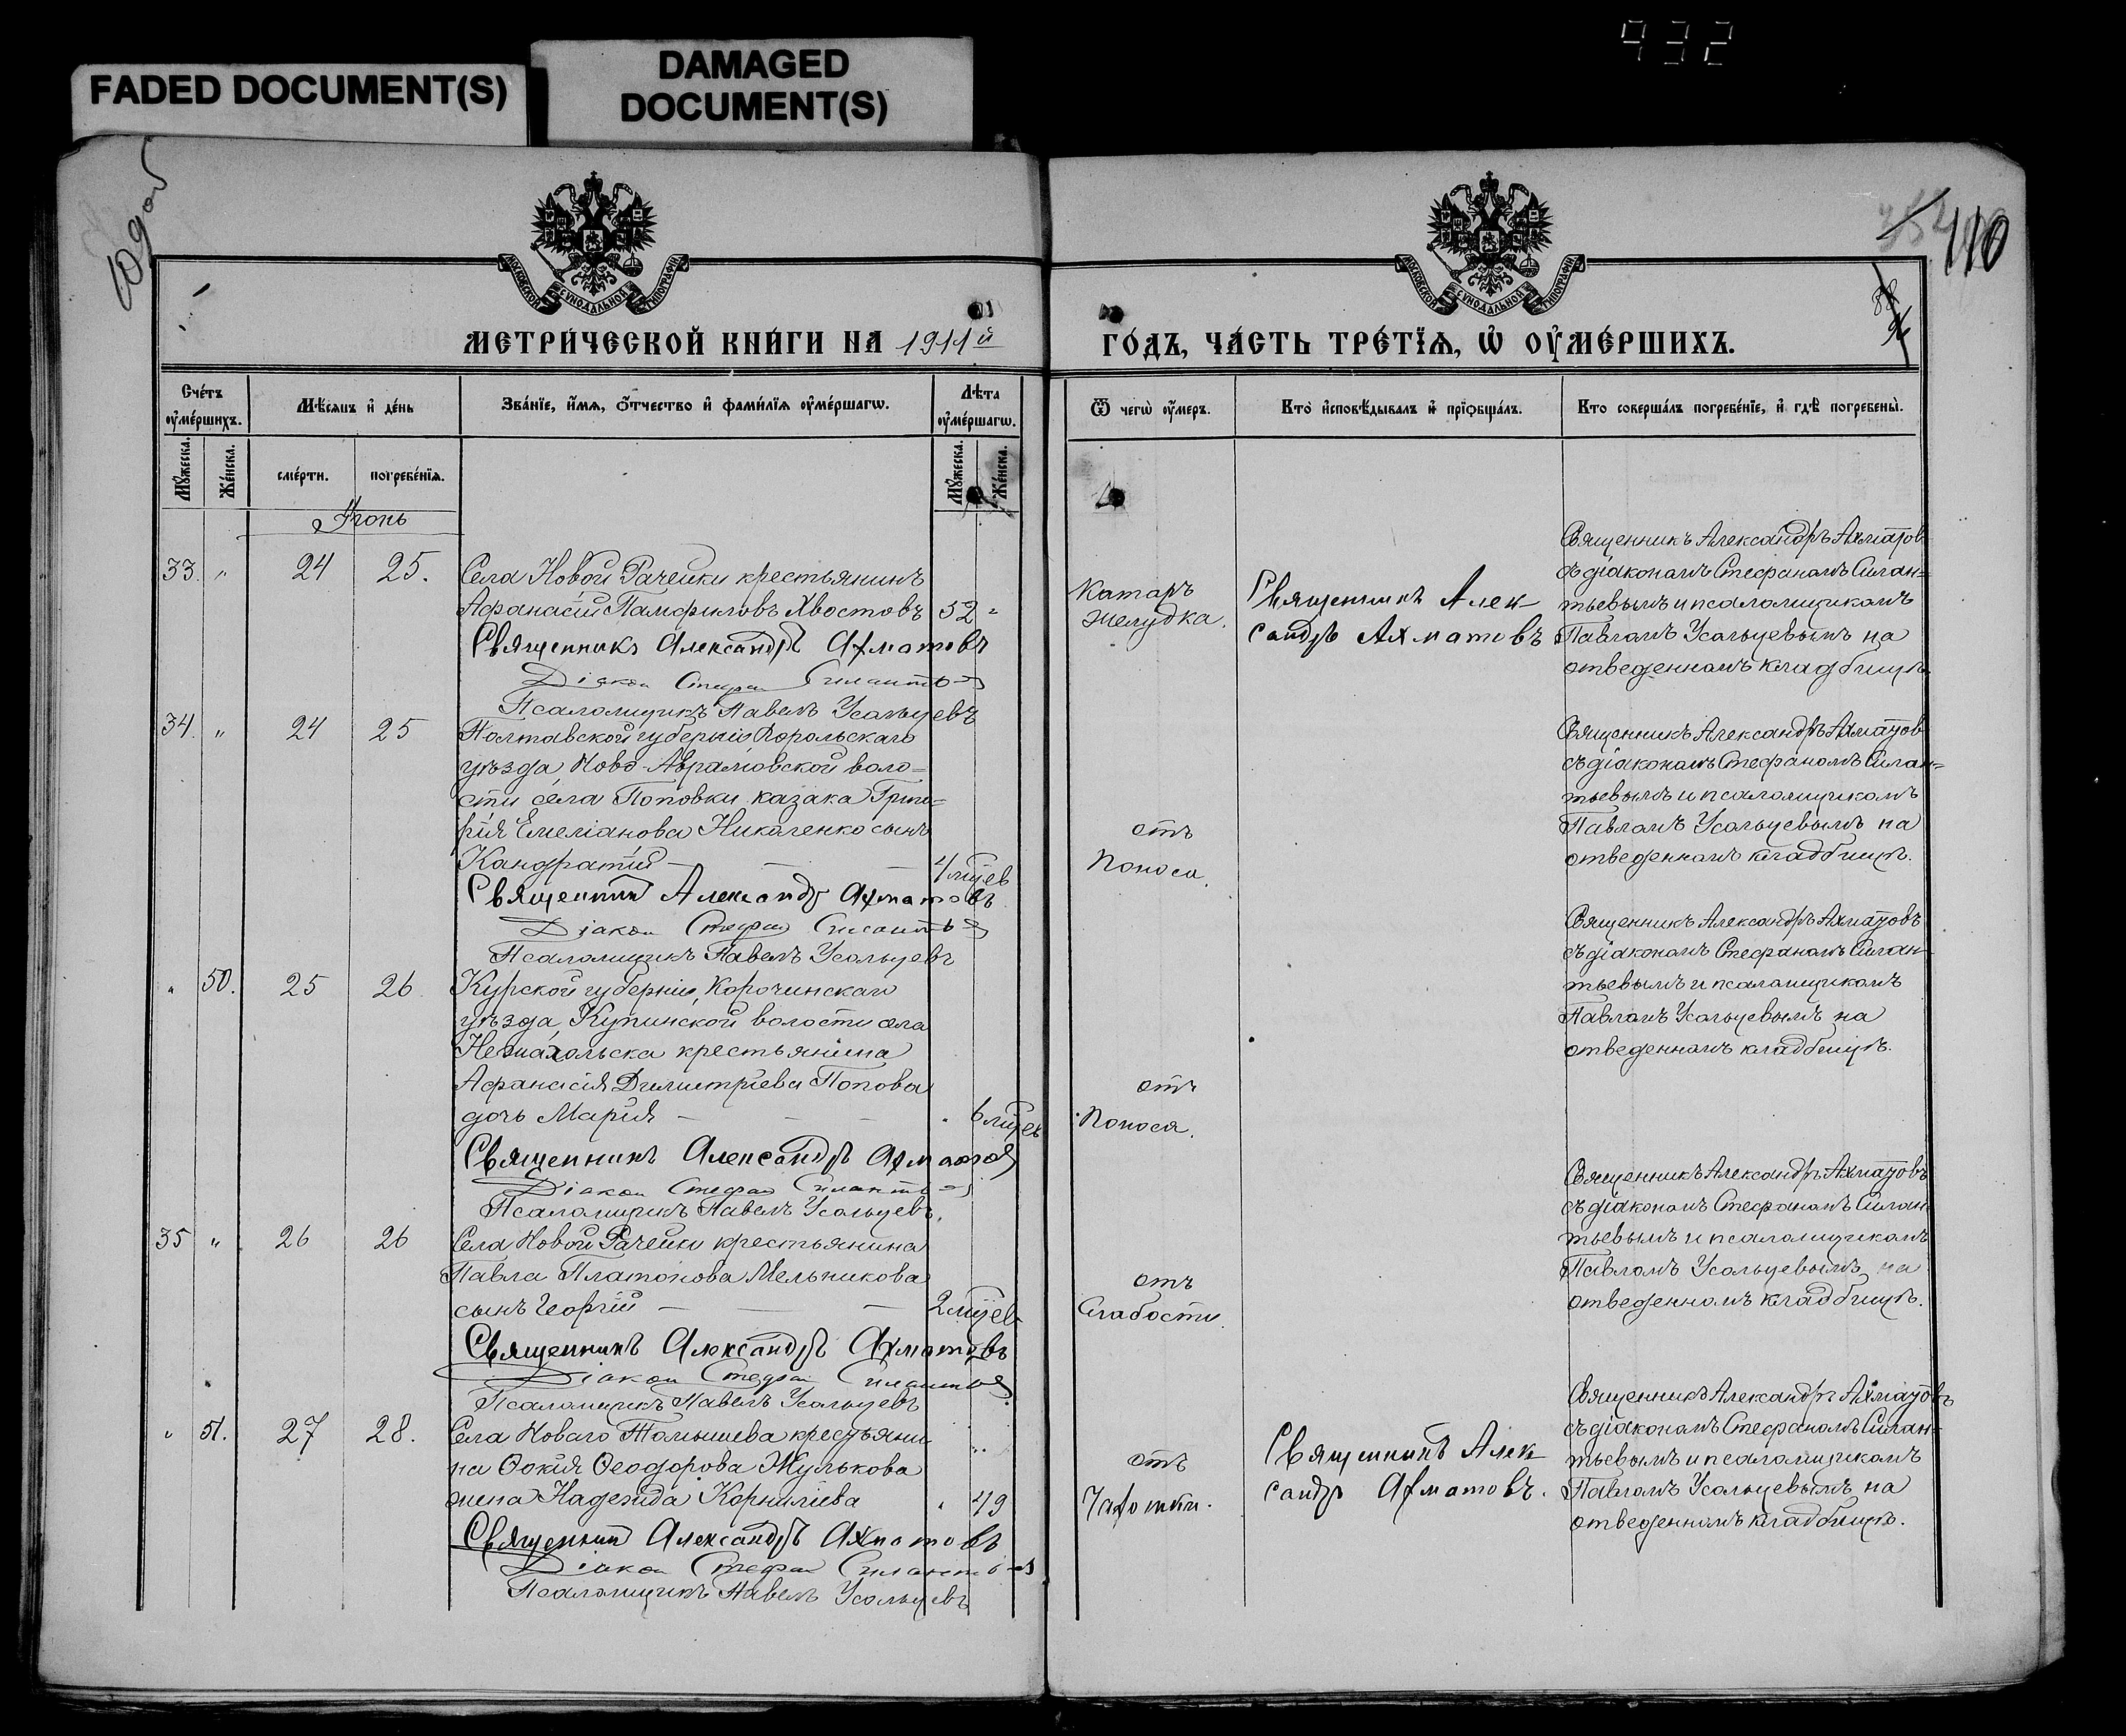 932
FADED DOCUMENT(S)
DAMAGED
DOCUMENT(S)
109 об
110
МОСКОВСКОЙ СѴНОДАЛЬНОЙ ТИПОГРАФІИ
МОСКОВСКОЙ СѴНОДАЛЬНОЙ ТИПОГРАФІИ
МЕТРИ́ЧЕСКОЙ КНИ́ГИ НА 1911й
ГО́ДЪ, ЧА́СТЬ ТРЕ́ТІѦ, Ѡ҆ ОУ҆МЕ́РШИХЪ.
Сче́тъ
оу҆ме́ршихъ.
Мѣ́сѧцъ и҆ де́нь
Зва́нїе, и҆́мѧ, ѻ҆́тчество и҆ фами́лїѧ оу҆ме́ршагѡ.
Лѣ́та
оу҆ме́ршагѡ.
Ѿ чегѡ̀ оу҆́меръ.
Кто̀ и҆сповѣ́дывалъ и҆ прїѡбща́лъ.
Кто соверша́лъ погребе́нїе, и҆ гдѣ̀ погребены̀.
Мꙋ́жеска.
Же́нска.
сме́рти.
погребе́нїѧ.
Мꙋ́жеска.
Же́нска.
Іюнь
33. " 24 25.
Села Новой Рачейки крестьянинъ
Афанасій Памфиловъ Хвостовъ 52 "
Священникъ Александръ Ахматовъ
Діакон Стефан Силантьев
Псаломщикъ Павелъ Усольцевъ
Катаръ
желудка.
Священникъ Алек-
сандръ Ахматовъ
Священникъ Александръ Ахматов
съ діакономъ Стефаномъ Силан=
тьевымъ и псаломщикомъ
Павломъ Усольцевымъ на
отведенномъ кладбищѣ.
34. " 24 25
Полтавской губерніи Хорольскаго
уѣзда, Ново-Аврамовской воло=
сти села Поповки казака Григо=
рія Емеліанова Николенко сынъ
Кондратій — — — 4 мѣсев
Священник Александр Ахматовъ
Діакон Стефан Силантьев
Псаломщикъ Павелъ Усольцевъ
отъ
Поноса.
Священникъ Александръ Ахматов
съ діакономъ Стефаномъ Силан=
тьевымъ и псаломщикомъ
Павломъ Усольцевымъ на
отведенномъ кладбищѣ.
" 50. 25 26
Курской губерніи, Корочинскаго
уѣзда, Купинской волости села
крестьянина
Афанасія Димитріева Попова
дочь Марія — — — " 6 мѣсев
Священникъ Александръ Ахматов
Діакон Стефан Силантьев
Псаломщикъ Павелъ Усольцевъ.
отъ
Поноса.
Священникъ Александръ Ахматовъ
съ діакономъ Стефаномъ Силан-
тьевымъ и псаломщикомъ
Павломъ Усольцевымъ на
отведенномъ кладбищѣ.
35 " 26 26
Села Новой Рачейки крестьянина
Павла Платонова Мельникова
сынъ Георгій — — — 2 мѣсев
Священникъ Александръ Ахматовъ
Діакон Стефан Силантьев
Псаломщикъ Павелъ Усольцевъ
отъ
Слабости.
Священникъ Александръ Ахматовъ
съ діакономъ Стефаномъ Силан
тьевымъ и псаломщикомъ
Павломъ Усольцевымъ на
отведенномъ кладбищѣ.
" 51. 27 28.
Села Новаго Томышева крестьяни
на Ѳокія Ѳеодорова Жулькова
жена Надежда Корниліева " 49
Священник Александръ Ахматовъ
Діакон Стефан Силантьев
Псаломщикъ Павелъ Усольцевъ
отъ
Чахотки.
Священникъ Алек
сандръ Ахматовъ.
Священникъ Александръ Ахматовъ
съ діакономъ Стефаномъ Силан-
тьевымъ и псаломщикомъ
Павломъ Усольцевымъ на
отведенномъ кладбищѣ.